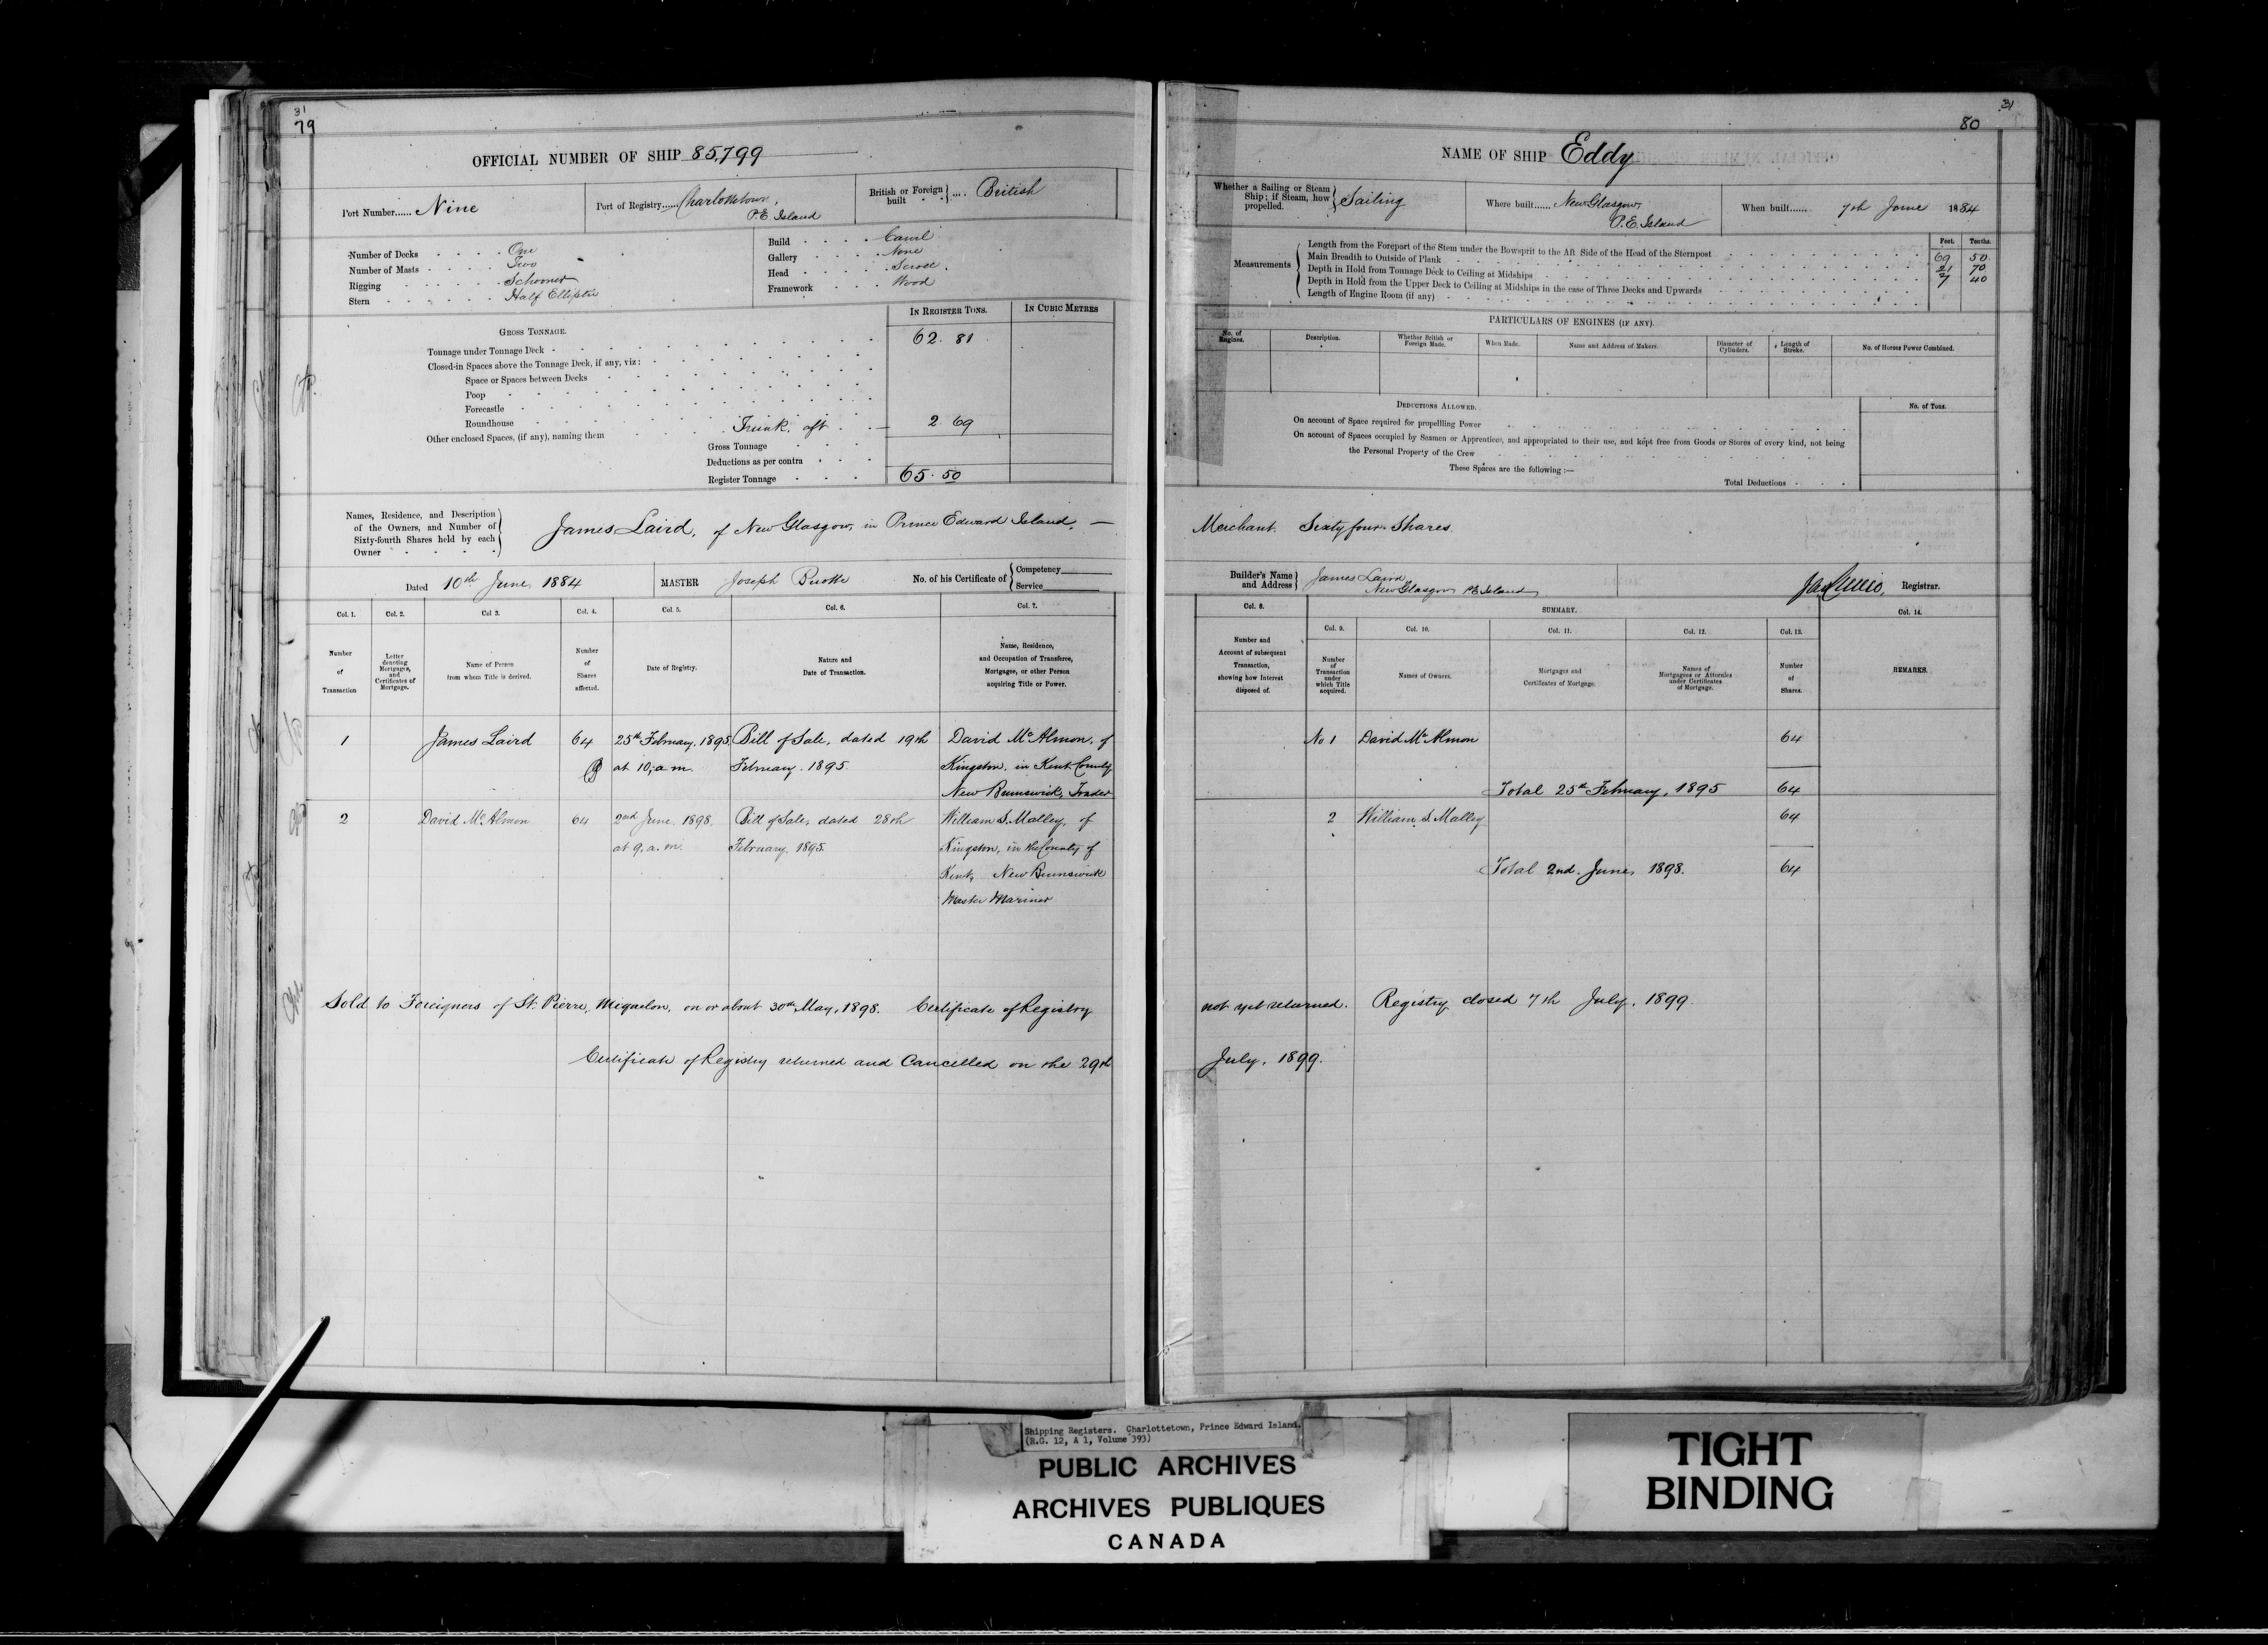 31
79
OFFICIAL NUMBER OF SHIP 85,799
Port Number...... Nine
Port of Registry...... Charlottetown,
P.E. Island
British or Foreign built .... British
Number of Decks One
Number of Masts Two
Rigging Schooner
Stern Half Elliptic
Build Carvil
Gallery None
Head Scroll
Framework Wood
GROSS TONNAGE.
IN REGISTER TONS. IN CUBIC METRES
Tonnage under Tonnage Deck 62.81
Closed-in Spaces above the Tonnage Deck, if any, viz:
Space or Spaces between Decks
Poop
Forecastle
Roundhouse
Other enclosed Spaces, (if any), naming them Trunk aft 2.69
Gross Tonnage
Deductions as per contra
Register Tonnage 65.50
Names, Residence, and Description
of the Owners, and Number of
Sixty-fourth Shares held by each
Owner
James Laird, of New Glasgow, in Prince Edward Island, —
Dated 10th June 1884 MASTER Joseph No. of his Certificate of Competency
Service
Col. 1. Col. 2. Col. 3. Col. 4. Col. 5. Col. 6. Col. 7.
Number of Transaction
Letter denoting Mortgages, and Certificates of Mortgage.
Name of Person from whom Title is derived.
Number of Shares affected.
Date of Registry.
Nature and Date of Transaction.
Name, Residence, and Occupation of Transferee, Mortgagee, or other Person acquiring Title or Power.
1 James Laird 64 25th February, 1895, Bill of Sale, dated 19th David McAlmon, of
at 10, a.m. February 1895. Kingston, in Kent County
New Brunswick, Trader
2 David McAlmon 64 2nd June, 1898, Bill of Sale, dated 28th William S. Malley, of
at 9. a.m. February, 1895. Kingston, in the County of
Kent, New Brunswick
Master Mariner
Sold to Foreigners of St. Pierre, Miquelon, on or about 30th May, 1898. Certificate of Registry
Certificate of Registry returned and Cancelled on the 29th
31
80
NAME OF SHIP Eddy
Whether a Sailing or Steam Ship; if Steam, how propelled. Sailing
Where built...... New Glasgow,
P.E. Island
When built...... 7th June 1884
Measurements
Feet. Tenths.
Length from the Forepart of the Stem under the Bowsprit to the Aft Side of the Head of the Sternpost 69 50
Main Breadth to Outside of Plank 21 70
Depth in Hold from Tonnage Deck to Ceiling at Midships 7 40
Depth in Hold from the Upper Deck to Ceiling at Midships in the case of Three Decks and Upwards
Length of Engine Room (if any)
PARTICULARS OF ENGINES (IF ANY).
No. of Engines.
Description.
Whether British or Foreign Made.
When Made.
Name and Address of Makers.
Diameter of Cylinders.
Length of Stroke.
No. of Horses Power Combined.
DEDUCTIONS ALLOWED.
No. of Tons.
On account of Space required for propelling Power
On account of Spaces occupied by Seamen or Apprentices, and appropriated to their use, and kept free from Goods or Stores of every kind, not being
the Personal Property of the Crew
These Spaces are the following:—
Total Deductions
Merchant. Sixty four Shares.
Builder's Name and Address James Laird
New Glasgow P.E. Island
Registrar.
Col. 8.
SUMMARY.
Col. 14.
Col. 9. Col. 10. Col. 11. Col. 12. Col. 13.
Number and Account of subsequent Transaction, showing how Interest disposed of.
Number of Transaction under which Title acquired.
Names of Owners.
Mortgages and Certificates of Mortgage.
Names of Mortgagees or Attornies under Certificates of Mortgage.
Number of Shares.
REMARKS.
No 1 David McAlmon 64
Total 25th February, 1895 64
2 William S. Malley 64
Total 2nd June, 1898. 64
not yet returned. Registry closed 7th July, 1899.
July, 1899.
Shipping Registers. Charlottetown, Prince Edward Island.
(R.G. 12, A 1, Volume 393)
PUBLIC ARCHIVES
ARCHIVES PUBLIQUES
CANADA
TIGHT
BINDING